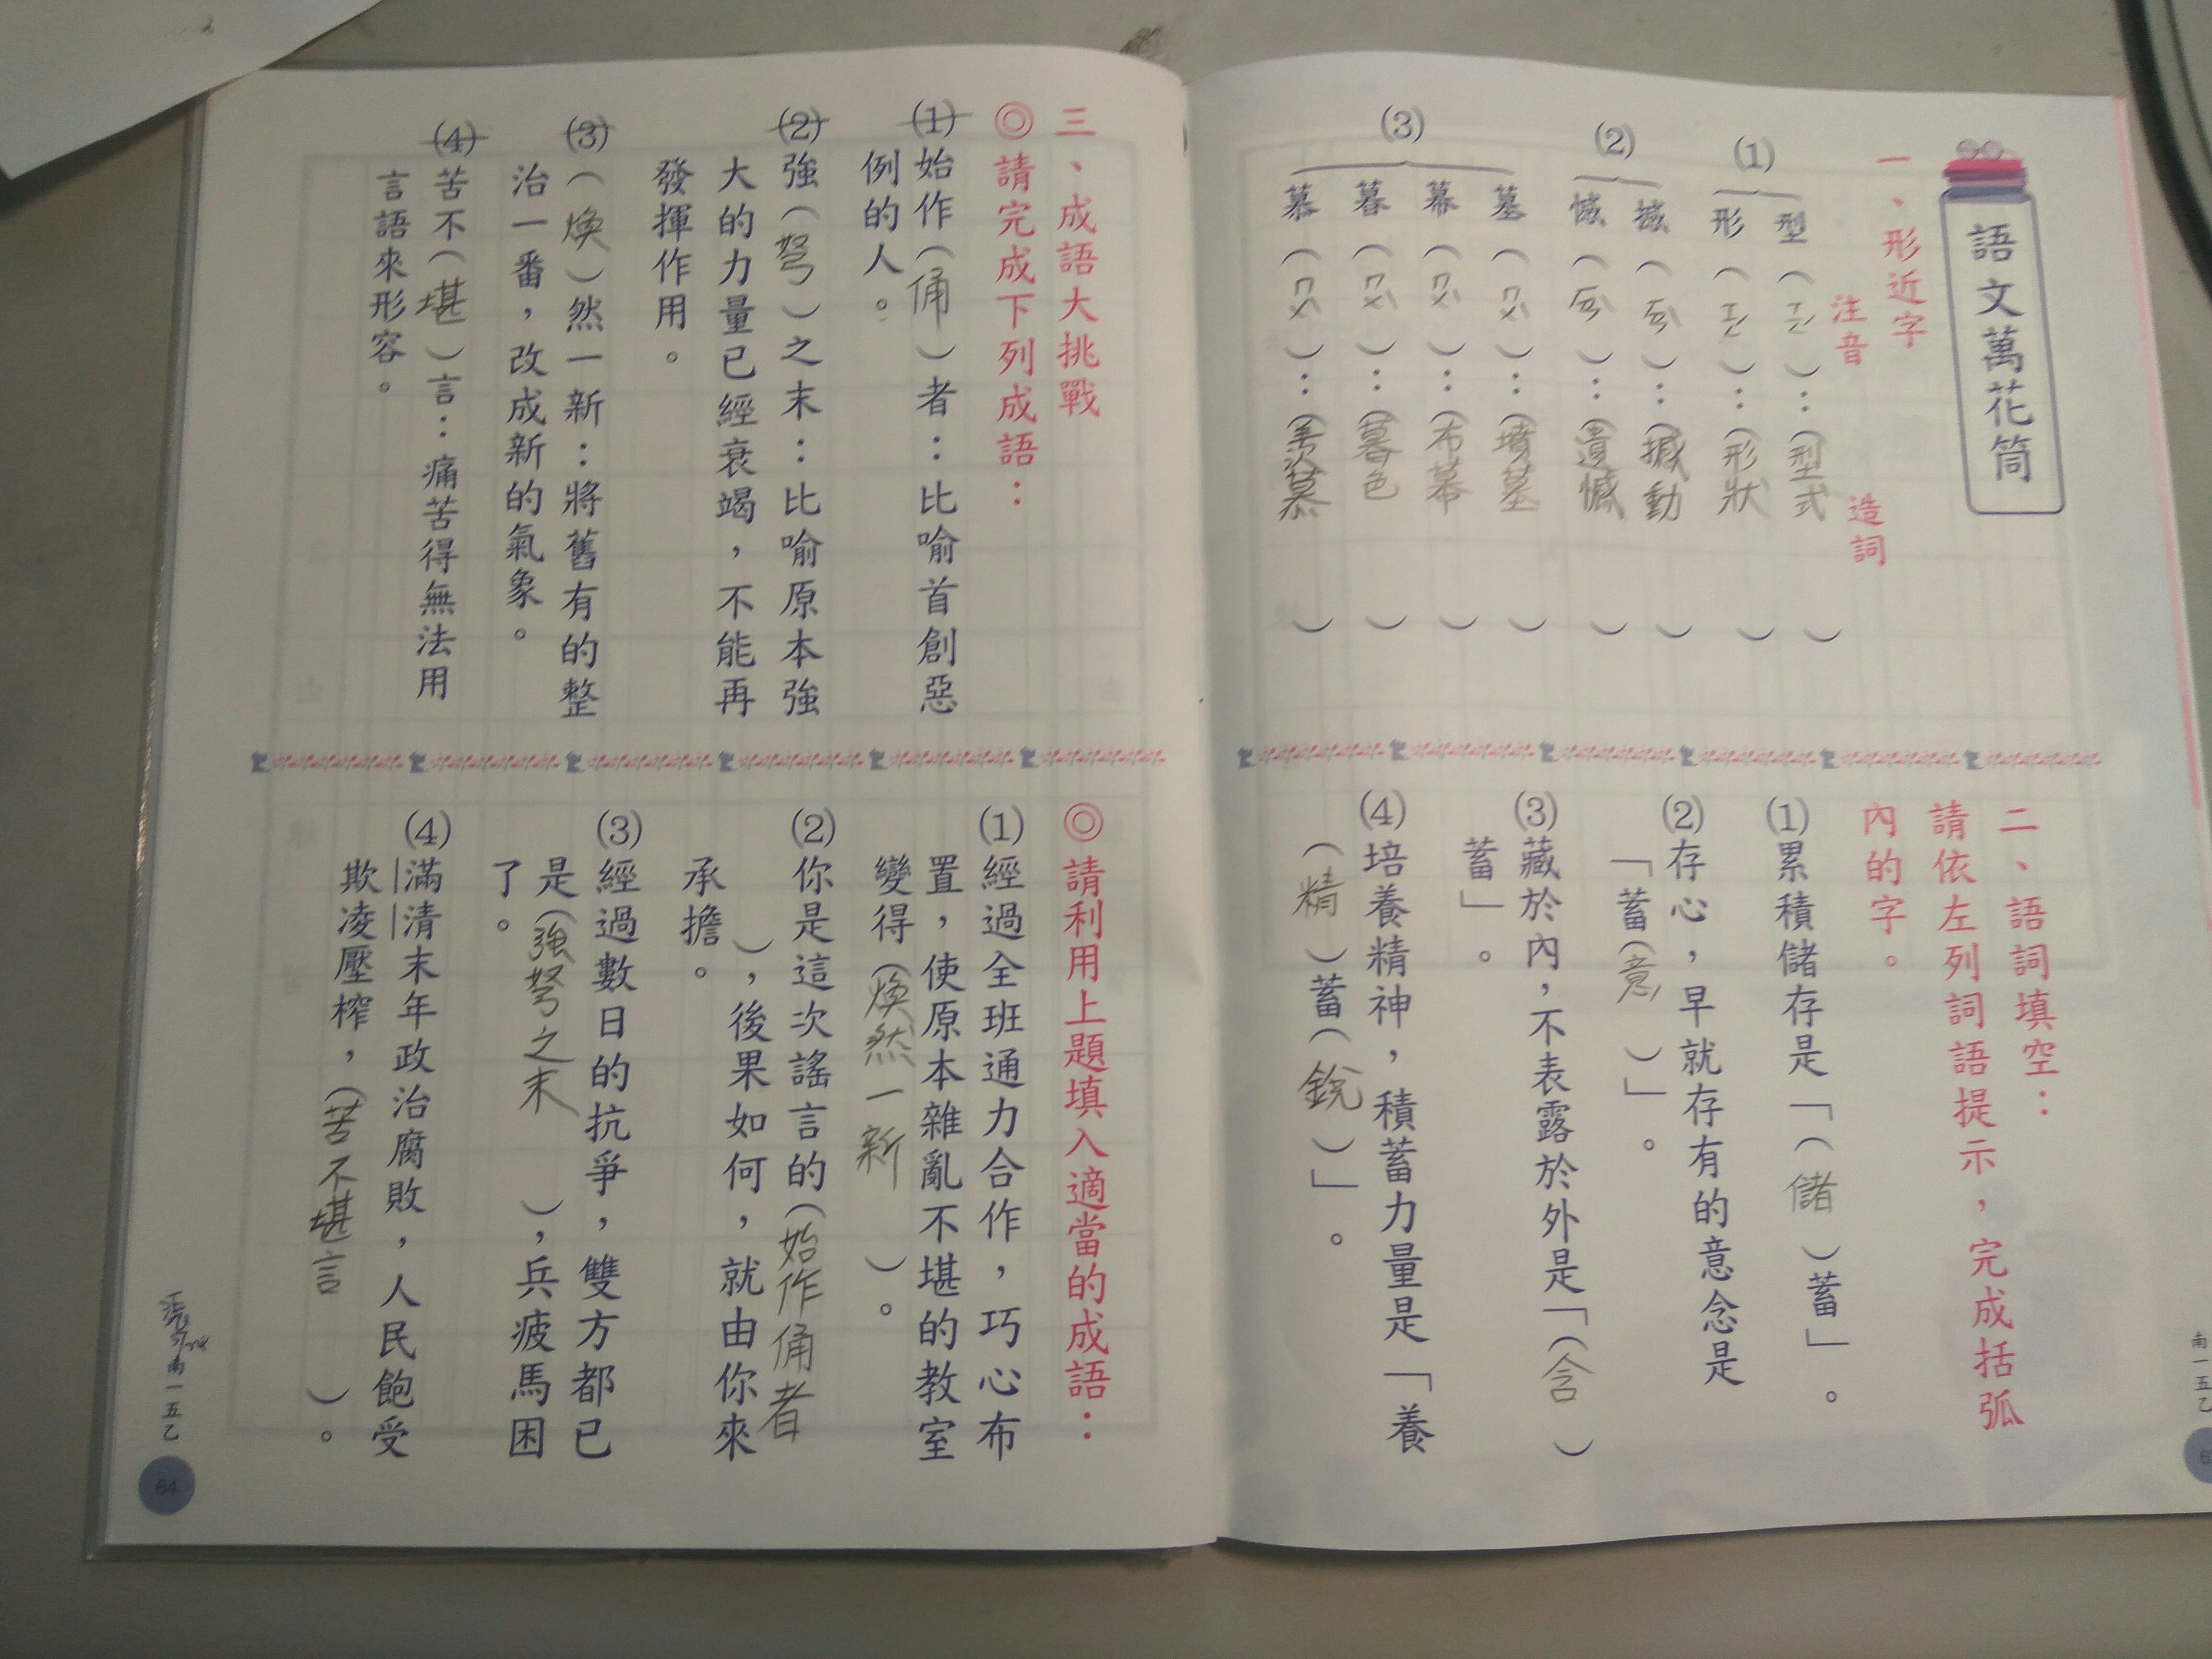 語文萬花筒
一、形近字
注音 造詞
(1)
型(ㄒㄧㄥˊ):(型式)
形(ㄒㄧㄥˊ):(形狀)
(2)
撼(ㄏㄢˋ):(撼動)
憾(ㄏㄢˋ):(遺憾)
(3)
墓(ㄇㄨˋ):(墳墓)
幕(ㄇㄨˋ):(布幕)
暮(ㄇㄨˋ):(暮色)
慕(ㄇㄨˋ):(羨慕)
二、語詞填空:
請依左列詞語提示,完成括弧
內的字。
(1)累積儲存是「(儲)蓄」。
(2)存心,早就存有的意念是
「蓄(意)」。
(3)藏於內,不表露於外是「(含)
蓄」。
(4)培養精神,積蓄力量是「養
(精)蓄(銳)」。
南一五乙
三、成語大挑戰
◎請完成下列成語:
(1)始作(俑)者:比喻首創惡
例的人。
(2)強(弩)之末:比喻原本強
大的力量已經衰竭,不能再
發揮作用。
(3)(煥)然一新:將舊有的整
治一番,改成新的氣象。
(4)苦不(堪)言:痛苦得無法用
言語來形容。
◎請利用上題填入適當的成語:
(1)經過全班通力合作,巧心布
置,使原本雜亂不堪的教室
變得(煥然一新)。
(2)你是這次謠言的(始作俑者
),後果如何,就由你來
承擔。
(3)經過數日的抗爭,雙方都已
是(強弩之末),兵疲馬困
了。
(4)滿清末年政治腐敗,人民飽受
欺凌壓榨,(苦不堪言)。
南一五乙
64